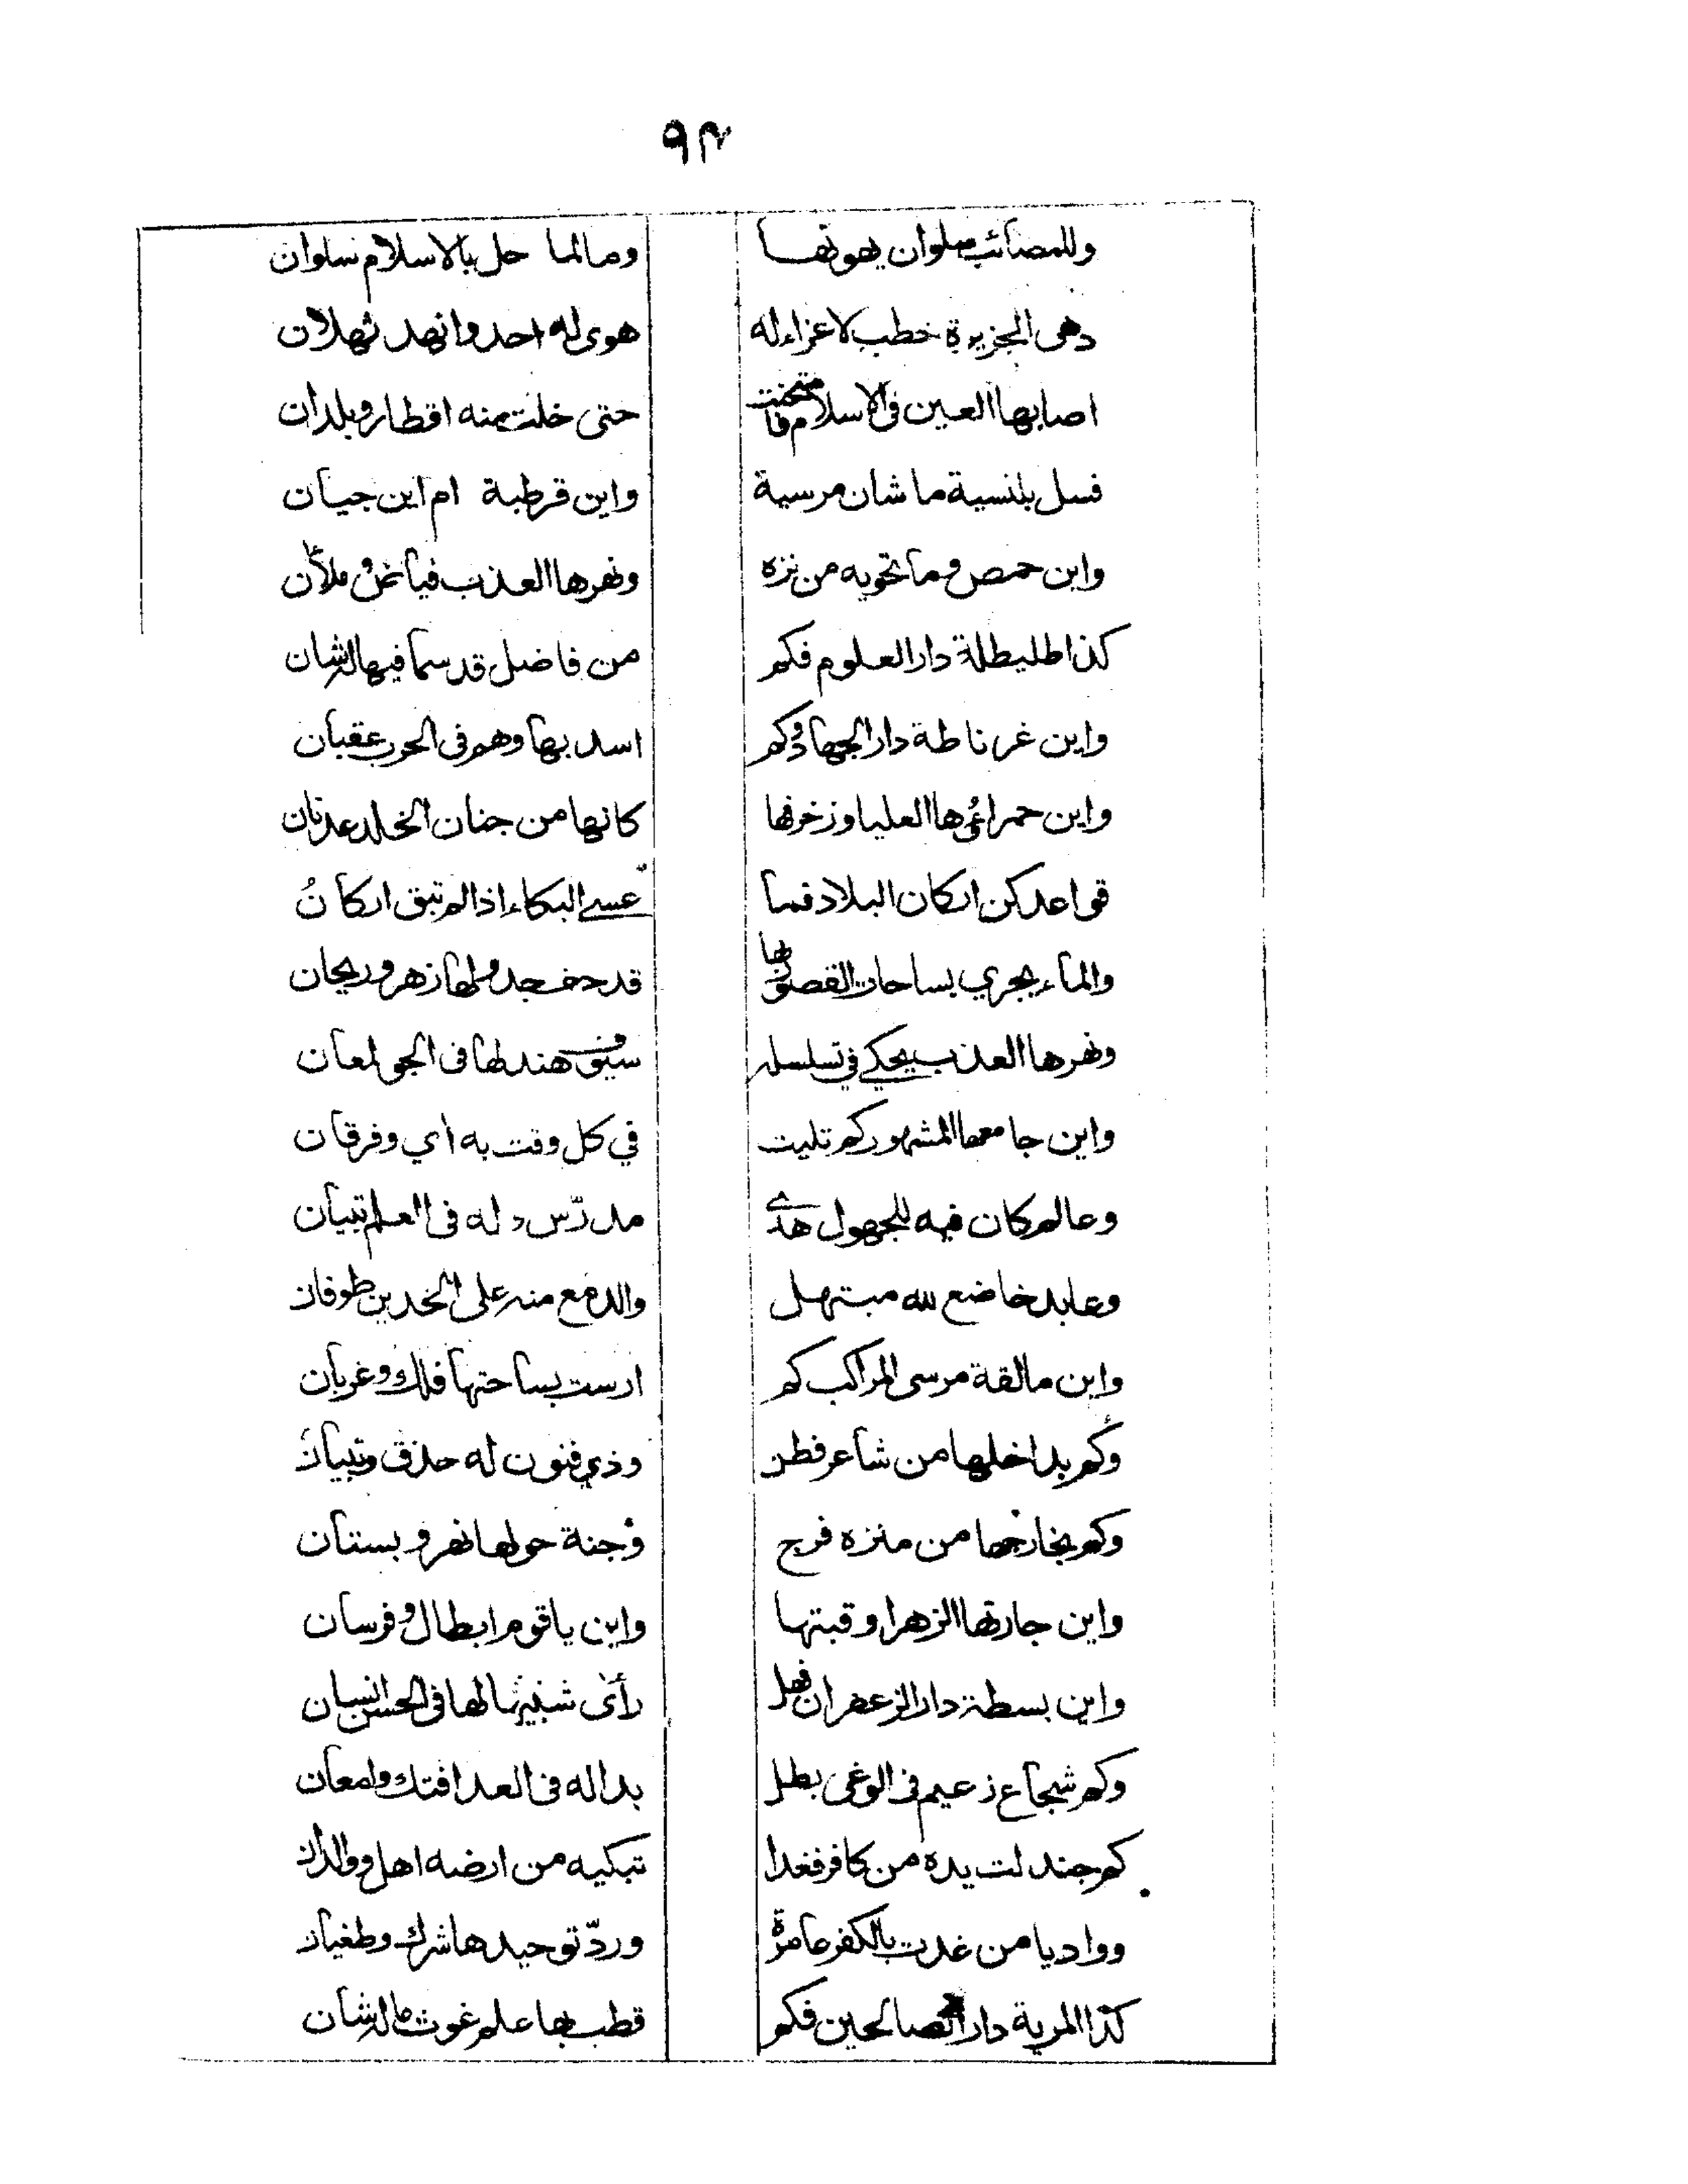 ٩٣
وللمصائب سلوان يهونها وما لما حل بالاسلام سلوان
دهى الجزيرة خطب لا عزاء له هوى له احد وانهد ثهلان
اصابها العين فى الاسلام فامتحنت حتى خلت منه اقطار وبلدان
فسل بلنسية ما شان مرسية واين قرطبة ام اين جيان
واين حمص وما تحويه من نزه ونهرها العذب فياض وملآن
كذا طليطلة دار العلوم فكم من فاضل قد سما فيها له شان
واين غرناطة دار الجهاد وكم اسد بها وهم فى الحرب عقبان
واين حمراؤها العليا وزخرفها كانها من جنان الخلد عدنان
قواعد كن اركان البلاد فما عسى البكاء اذا لم تبق اركانُ
والماء يجري بساحات القصور بها قد حف جدولها زهر وريحان
ونهرها العذب يحكي في تسلسله سيوف هند لها فى الجو لمعان
واين جامعها المشهور كم تليت في كل وقت به أي وفرقان
وعالم كان فيه للجهول هدى مدرّس وله فى العلم تبيان
وعابد خاضع لله مبتهل والدمع منه على الخدين طوفان
واين مالقة مرسى المراكب كم ارست بساحتها فلك وغربان
وكم بداخلها من شاعر فطن وذي فنون له حذق وتبيان
وكم بخارجها من منزه فرج وجنة حولها نهر وبستان
واين جارتها الزهرا وقبتها واين ياقوم ابطال وفرسان
واين بسطة دار الزعفران فهل رأى شبيها لها فى الحسن انسان
وكم شجاع زعيم فى الوغى بطل بدا له فى العدا فتك وامعان
كم جندلت يده من كافر فغدا تبكيه من ارضه اهل وولدان
وواديا من غدت بالكفر عامرة وردّ توحيدها شرك وطغيان
كذا المرية دار الصالحين فكم قطب بها علم غوث له شان